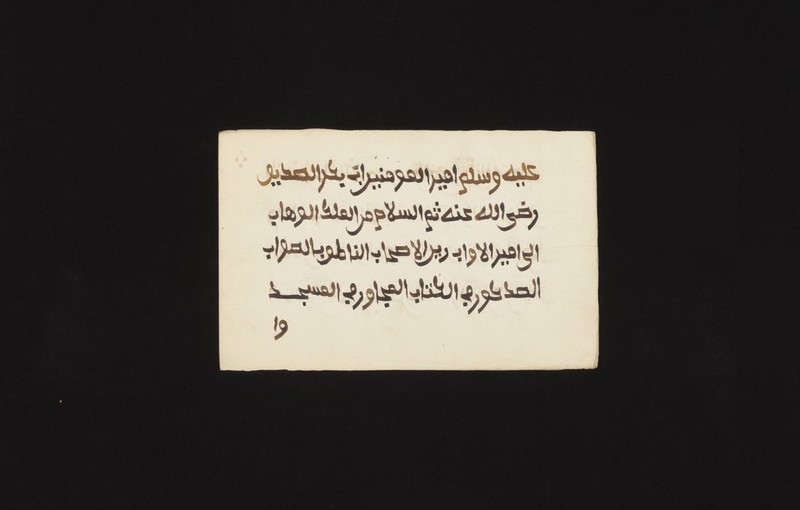 عليه وسلم امير المومنين ابى بكر الصديق
رضى الله عنه ثم السلام من الملك الوهاب
الى امير الاواب زين الاصحاب الناطق بالصواب
المذكور في الكتاب المجاور في المسجد
وا